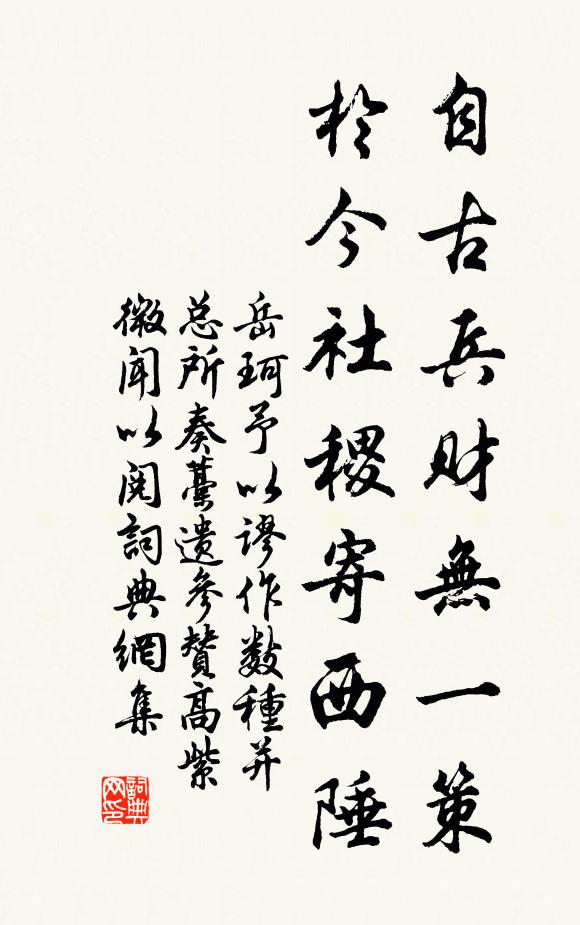 自古兵財無一策
於今社稷寄西陲
岳珂予以謬作数種并
总所奏藁遗参賛高紫
微闻以阅詞典網集
詞典
网印